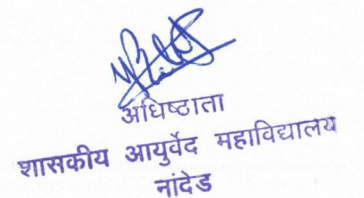 अधिष्ठाता
शासकीय आयुर्वेद महाविद्यालय
नांदेड